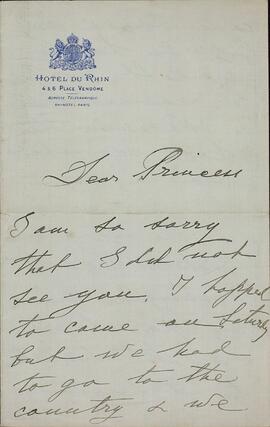 HOTEL DU RHIN
4 & 6 PLACE VENDOME
ADRESSE TÉLÉGRAPHIQUE
RHINOTEL PARIS
Dear Princess
I am so sorry
that I did not
see you. I hopped
to come on Saturday
but we had
to go to the
country & we